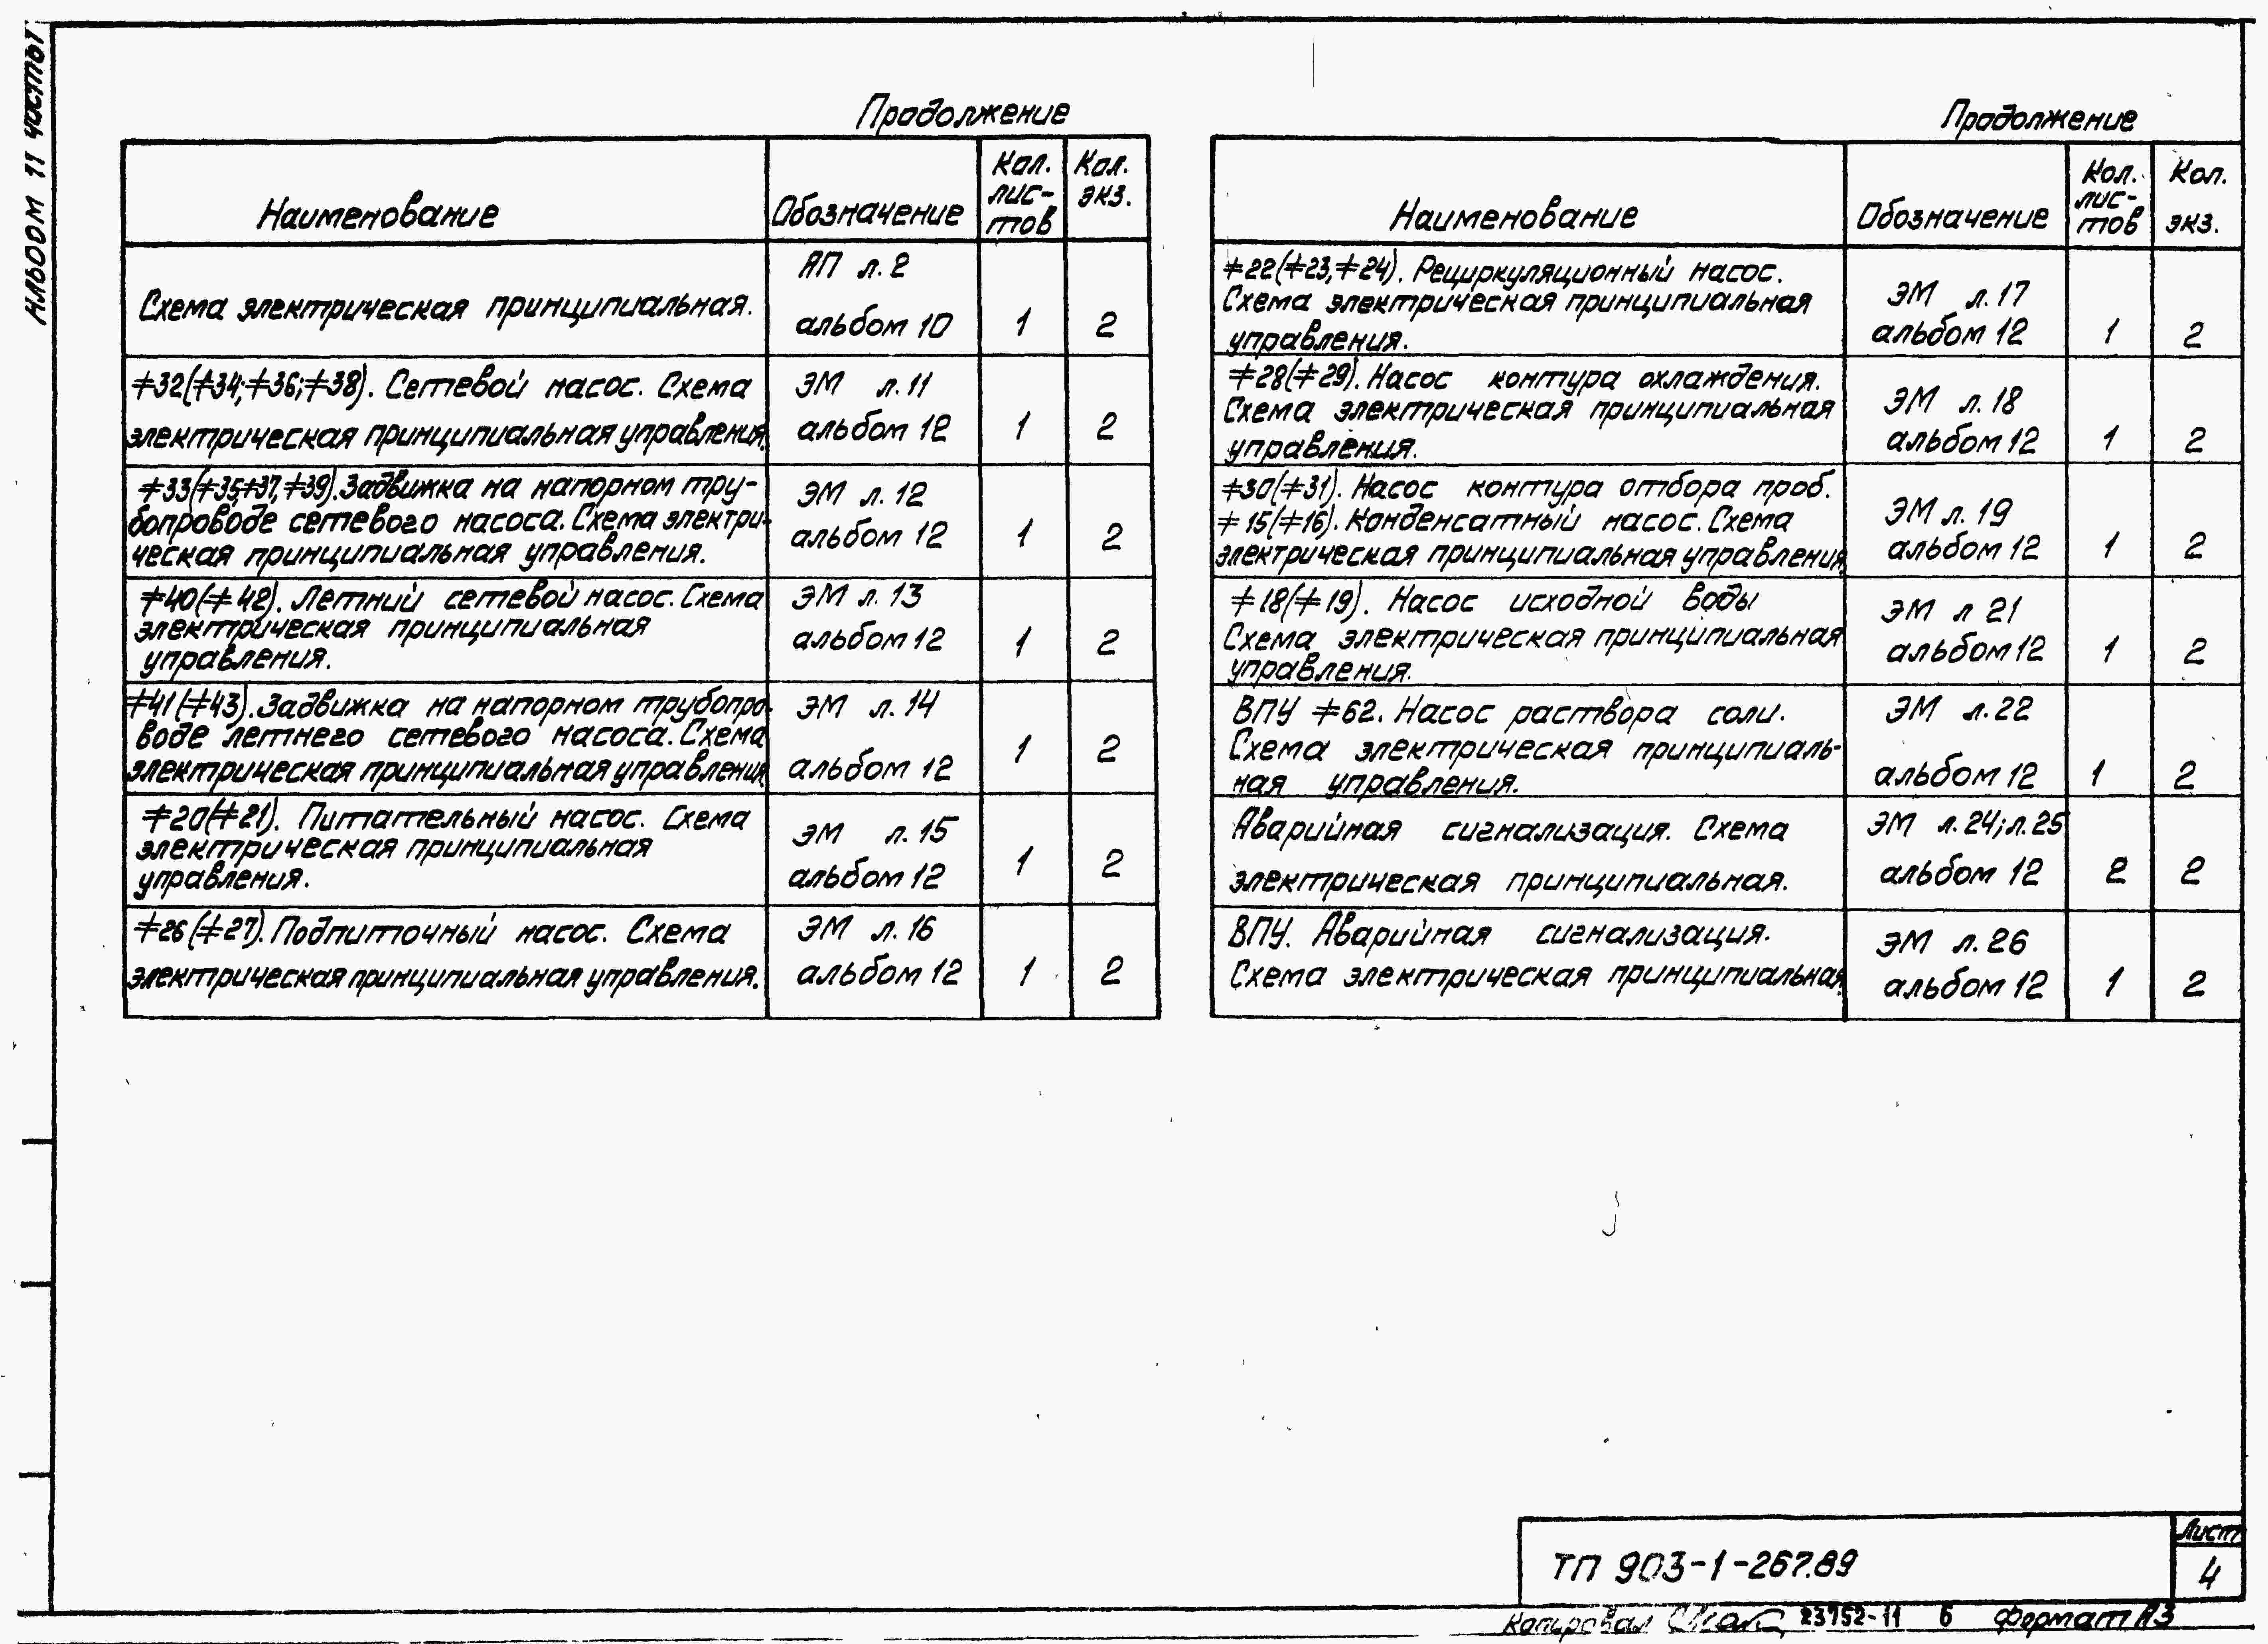 Альбом 11 часть 1
Продолжение
Наименование
Обозначение
Кол.
лис-
тов
Кол.
экз.
Схема электрическая принципиальная.
АП л.2
альбом 10
1
2
≠32(≠34;≠36;≠38). Сетевой насос. Схема
электрическая принципиальная управления.
ЭМ л.11
альбом 12
1
2
≠33(≠35,≠37,≠39). Задвижка на напорном тру-
бопроводе сетевого насоса. Схема электри-
ческая принципиальная управления.
ЭМ л.12
альбом 12
1
2
≠40(≠42). Летний сетевой насос. Схема
электрическая принципиальная
управления.
ЭМ л.13
альбом 12
1
2
≠41(≠43). Задвижка на напорном трубопро-
воде летнего сетевого насоса. Схема
электрическая принципиальная управления.
ЭМ л.14
альбом 12
1
2
≠20(≠21). Питательный насос. Схема
электрическая принципиальная
управления.
ЭМ л.15
альбом 12
1
2
≠26(≠27). Подпиточный насос. Схема
электрическая принципиальная управления.
ЭМ л.16
альбом 12
1
2
Продолжение
Наименование
Обозначение
Кол.
лис-
тов
Кол.
экз.
≠22(≠23,≠24). Рециркуляционный насос.
Схема электрическая принципиальная
управления.
ЭМ л.17
альбом 12
1
2
≠28(≠29). Насос контура охлаждения.
Схема электрическая принципиальная
управления.
ЭМ л.18
альбом 12
1
2
≠30(≠31). Насос контура отбора проб.
≠15(≠16). Конденсатный насос. Схема
электрическая принципиальная управления.
ЭМ л.19
альбом 12
1
2
≠18(≠19). Насос исходной воды
Схема электрическая принципиальная
управления.
ЭМ л 21
альбом 12
1
2
ВПУ ≠62. Насос раствора соли.
Схема электрическая принципиаль-
ная управления.
ЭМ л.22
альбом 12
1
2
Аварийная сигнализация. Схема
электрическая принципиальная.
ЭМ л.24; л.25
альбом 12
2
2
ВПУ. Аварийная сигнализация.
Схема электрическая принципиальная.
ЭМ л.26
альбом 12
1
2
ТП 903-1-267.89
Лист
4
Копировал 23752-11 6 Формат А3